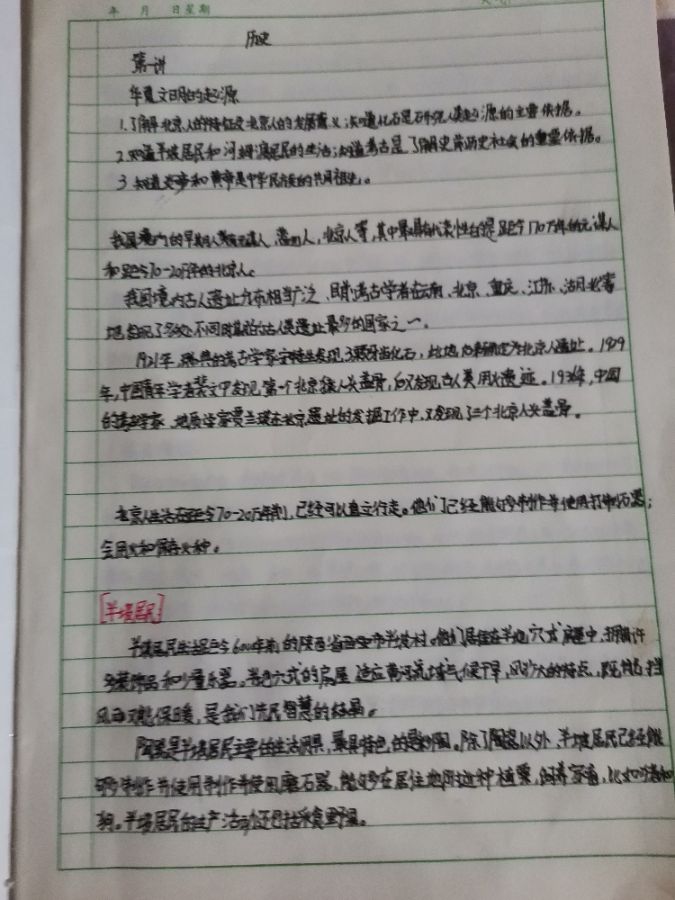 年 月 日星期
历史
第一讲
华夏文明的起源
1.了解北京人的特征及北京人的发展意义;知道化石是研究人类起源的主要依据。
2.知道半坡居民和河姆渡居民的生活;知道考古是了解史前历史社会的重要依据。
3.知道炎帝和黄帝是中华民族的共同祖先。
我国境内的早期人类有元谋人,蓝田人,北京人等,其中最具有代表性的是距今170万年的元谋人
和距今70-20万年的北京人。
我国境内古人类遗址分布相当广泛,目前考古学者在云南、北京、重庆、江苏、湖北等
地发现了多处不同时期的古人类遗址最多的国家之一。
1921年,瑞典的考古学家安特生发现3颗牙齿化石,此地,为确定为北京人遗址。1929
年,中国青年学者裴文中发现第一个北京猿人头盖骨,后又发现古人类用火遗迹。1936年,中国
的考古学家、地质学家贾兰坡在北京遗址的发掘工作中,又发现了三个北京人头盖骨。
北京人生活在距今70-20万年前,已经可以直立行走。他们已经能够制作并使用打制石器;
会用火和保存火种。
[半坡居民]
半坡居民生活距今6000年前的陕西省西安市半坡村。他们居住在半地穴式房屋中,拥有许
多装饰品和少量乐器。半地穴式的房屋适应黄河流域气候干旱,风沙大的特点,既能挡
风雨又能保暖,是我们先民智慧的结晶。
陶器是半坡居民主要的生活用具,最具特色的是彩陶。除了陶器以外,半坡居民已经能
够制作并使用制作并使用磨石器,能够在居住地附近种植粟,饲养家畜,比如猪和
狗。半坡居民的生产活动还包括采食野果。